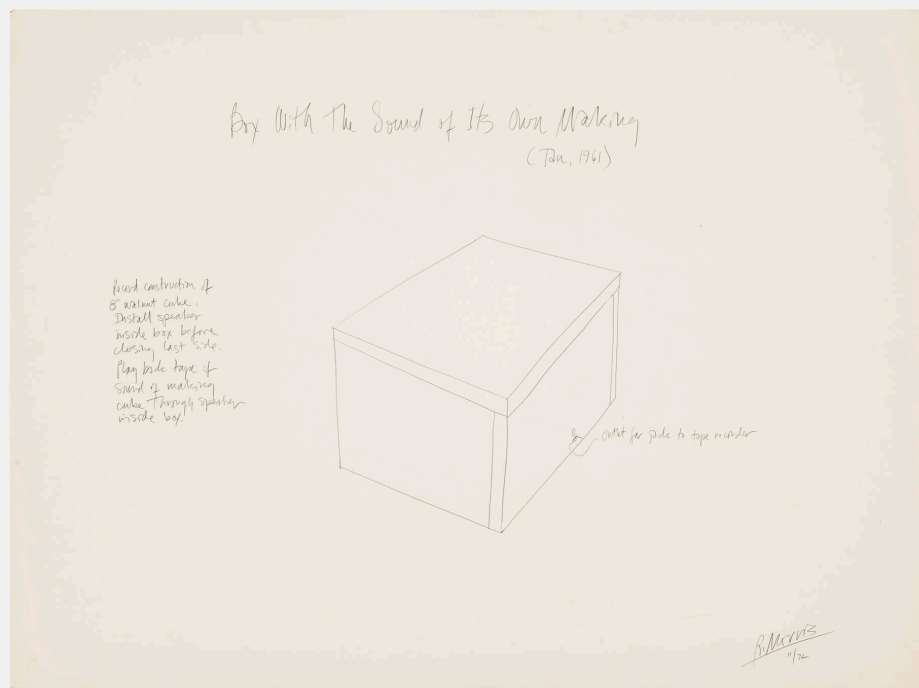 Box With The Sound of Its Own Making
(Jan, 1961)
Record construction of
8" walnut cube.
Install speaker
inside box before
closing last side.
Play back tape of
sound of making
cube through speaker
inside box.
outlet for jack to tape recorder
R. Morris
11/72